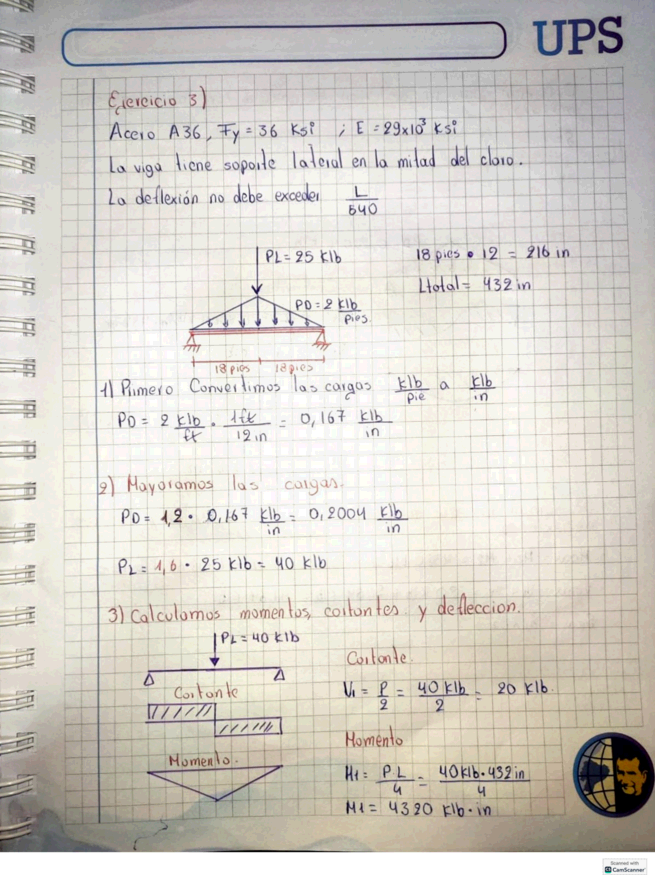 UPS
Ejercicio 3)
Acero A36, Fy = 36 Ksi ; E = 29x10³ Ksi
La viga tiene soporte lateral en la mitad del claro.
La deflexión no debe exceder L/540
PL = 25 Klb
18 pies • 12 = 216 in
PD = 2 Klb/pies.
Ltotal = 432 in
18 pies 18 pies
1) Primero Convertimos las cargas klb/pie a klb/in
PD = 2 klb/ft • 1ft/12in = 0,167 klb/in
2) Mayoramos las cargas.
PD = 1,2 • 0,167 klb/in = 0,2004 klb/in
PL = 1,6 • 25 klb = 40 klb
3) Calculamos momentos, cortantes y defleccion.
PL = 40 klb
Cortante.
V1 = P/2 = 40 klb/2 = 20 klb.
Cortante
Momento
Momento.
M1 = P.L/4 = 40klb•432in/4
M1 = 4320 klb•in
Scanned with
CS CamScanner